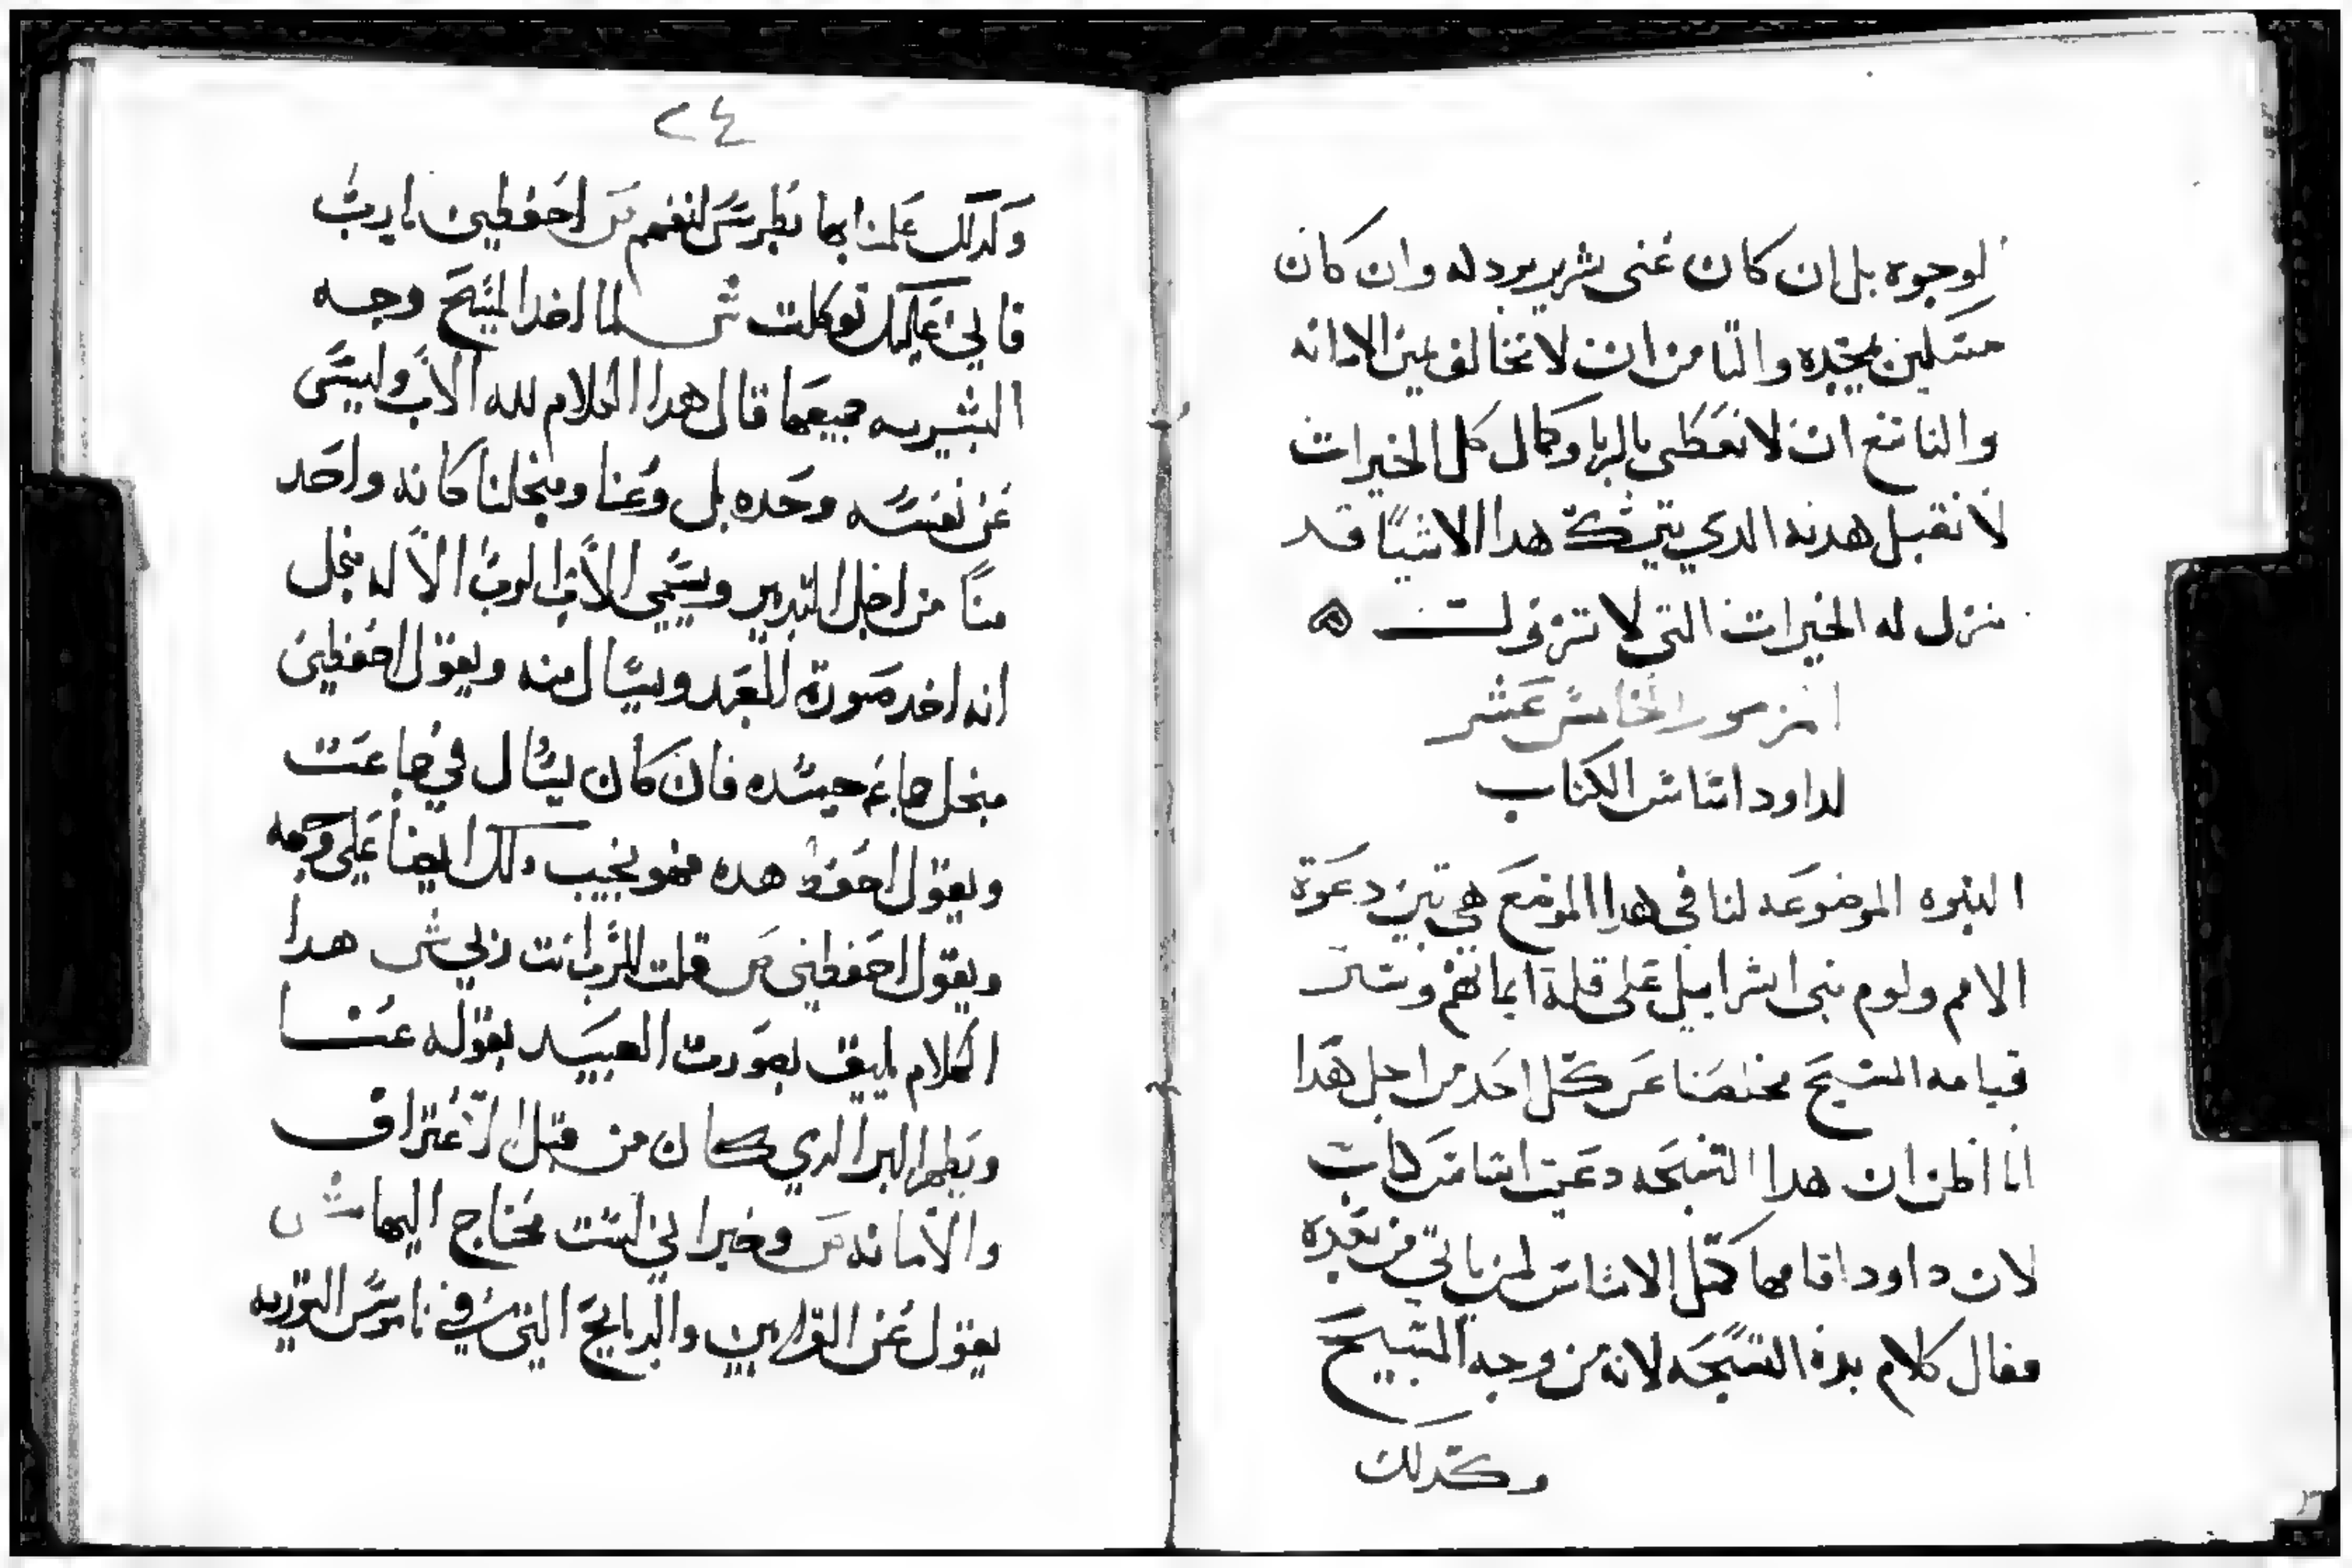 لوجوه بل ان كان غنى شرير يرد له وان كان
مسكين يمجده والتامن ان لا تخالف يمين الامانه
والتاسع ان لا تعطى بالربا وكمال كل الخيرات
لا تقبل هديه الدي يترك هدا الاشيا قد
تنزل له الخيرات التى لا تزولت
المزمور الخامس عشر
لداود اساس الكتاب
النبوه الموضوعه لنا فى هدا الموضع هي تبين دعوة
الامم ولوم بنى اسراييل على قلة ايمانهم وتبشر
قيامه المسيح مخلصنا عن كل احد من اجل هدا
انا اظن ان هدا التسبحه دعيت اساس كتاب
لان داود اقامها كمثل الاساس لمن ياتي من بعده
فقال كلام بدة التسبحه لانه من وجه المسيح
وكدلك
٢٤
وكدلك علمنا بها بطرس لنفهم ص احفظين يارب
فاني عليك توكلت ش لما اخد المسيح وجه
البشريه جميعها قال هدا الكلام لله الاب وليس
عن نفسه وحده بل وعنا ومنجلنا كانه واحد
منا من اجل التدبير ويسمي الاب الرب الاله منجل
انه اخد صورة العبد ويسال منه ويقول احفظين
منجل جماعه جسده فان كان يسال في جماعت
ويقول احفظ هده فهو يجيب دلك ايضا على وجهه
ويقول احفظني ص قلت للرب انت ربي ش هدا
الكلام يليق بصورت العبيد يقوله عنا
ويظهر البر الدي كان من قبل الاعتراف
والامانه ص وخيراتي لست محتاج اليها ش
يقول عن القرابين والدبايح التي في ناموس التوريه